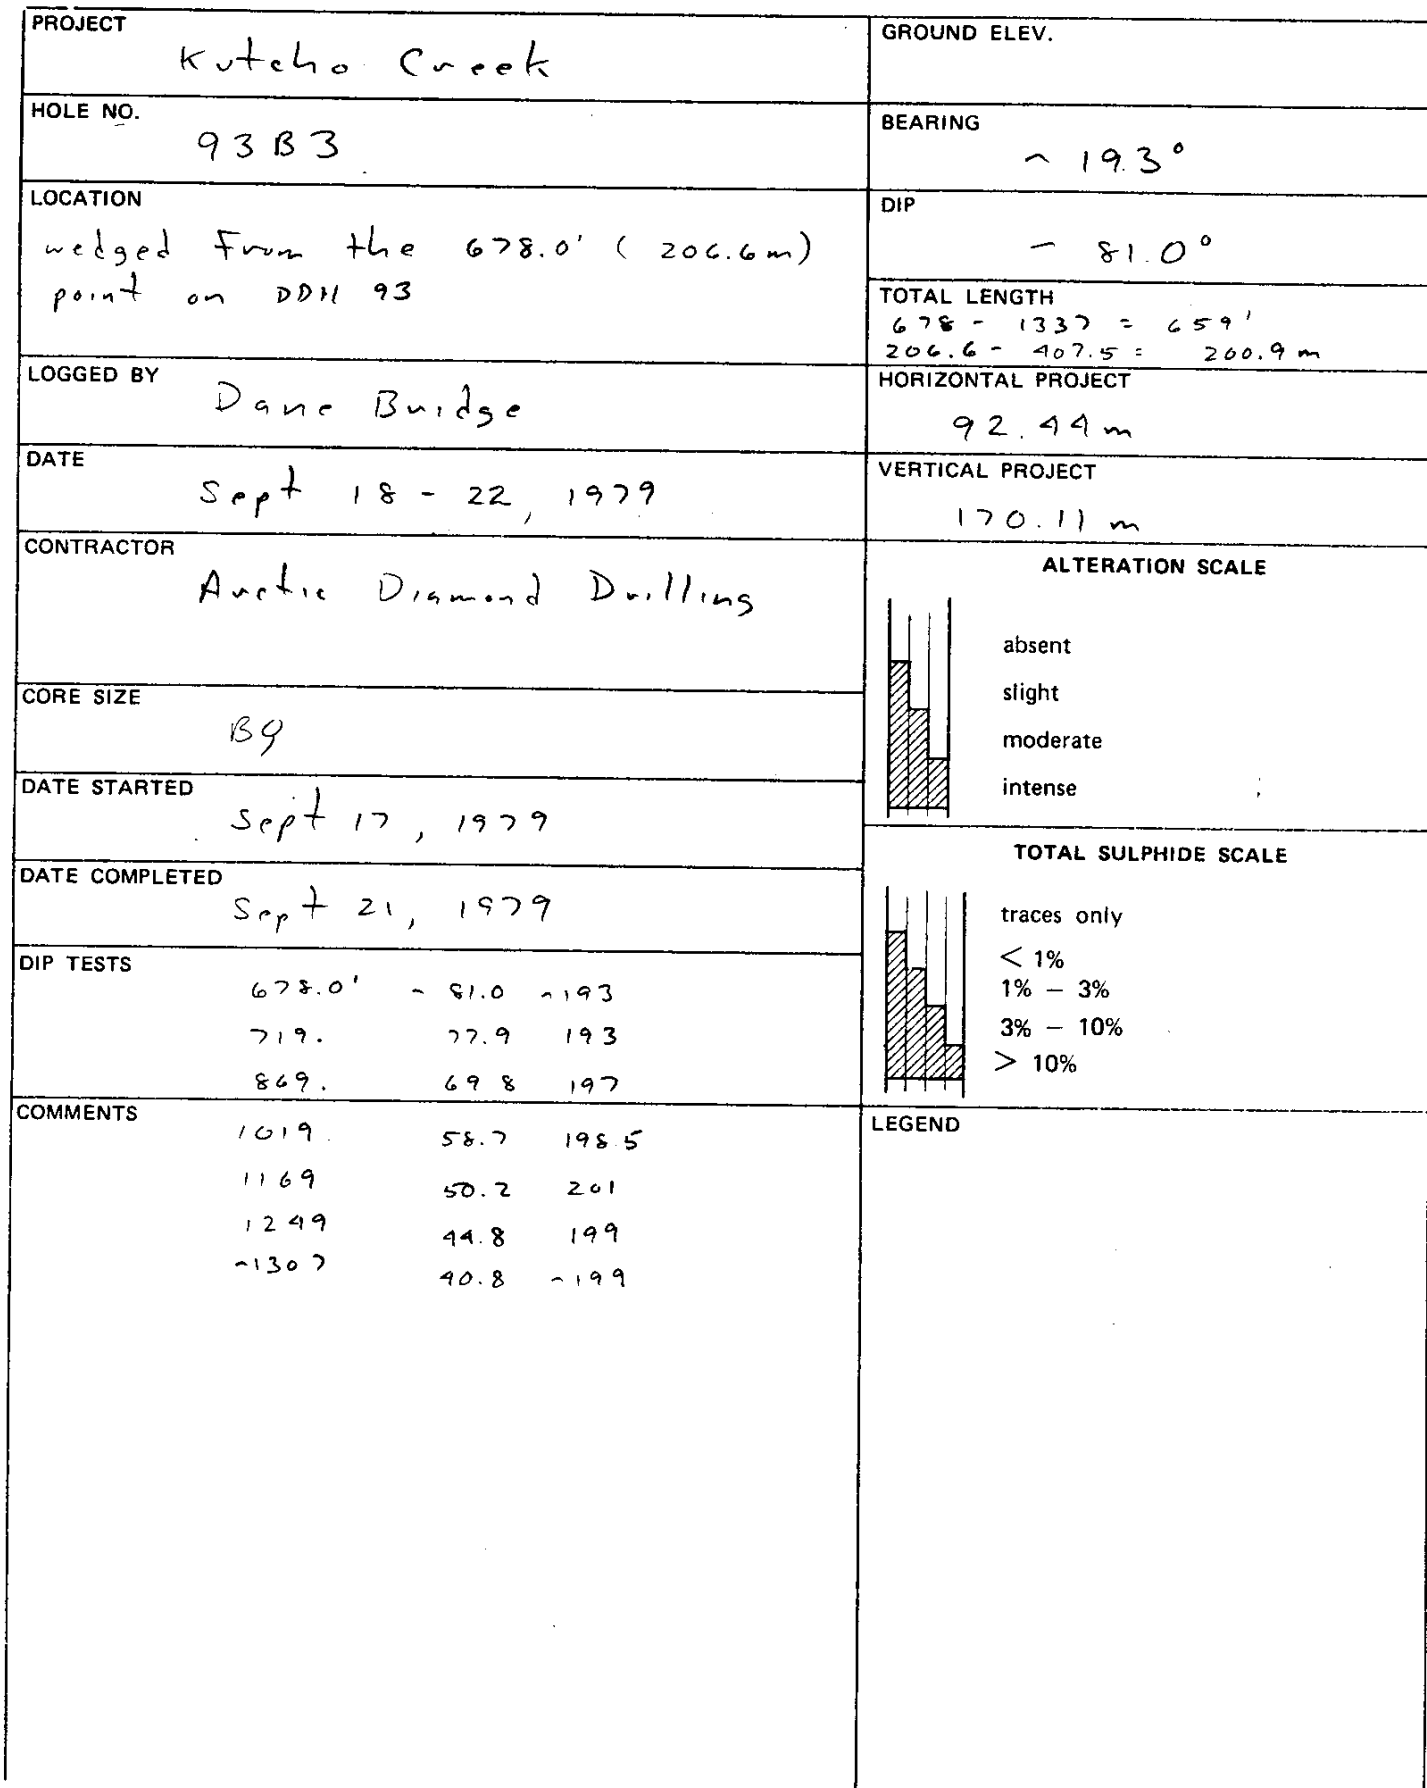 PROJECT
Kutcho Creek
HOLE NO.
93B3
LOCATION
wedged from the 678.0' (206.6m)
point on DDH 93
LOGGED BY
Dane Bridge
DATE
Sept 18 - 22, 1979
CONTRACTOR
Arctic Diamond Drilling
CORE SIZE
BQ
DATE STARTED
Sept 17, 1979
DATE COMPLETED
Sept 21, 1979
DIP TESTS
678.0' ~ 81.0 ~193
719. 77.9 193
869. 69.8 197
COMMENTS
1019. 58.7 198.5
1169 50.2 201
1249 44.8 199
~1307 40.8 ~199
GROUND ELEV.
BEARING
~ 193°
DIP
~ 81.0°
TOTAL LENGTH
678 - 1337 = 659'
206.6 - 407.5 = 200.9 m
HORIZONTAL PROJECT
92.44 m
VERTICAL PROJECT
170.11 m
ALTERATION SCALE
absent
slight
moderate
intense
TOTAL SULPHIDE SCALE
traces only
< 1%
1% – 3%
3% – 10%
> 10%
LEGEND